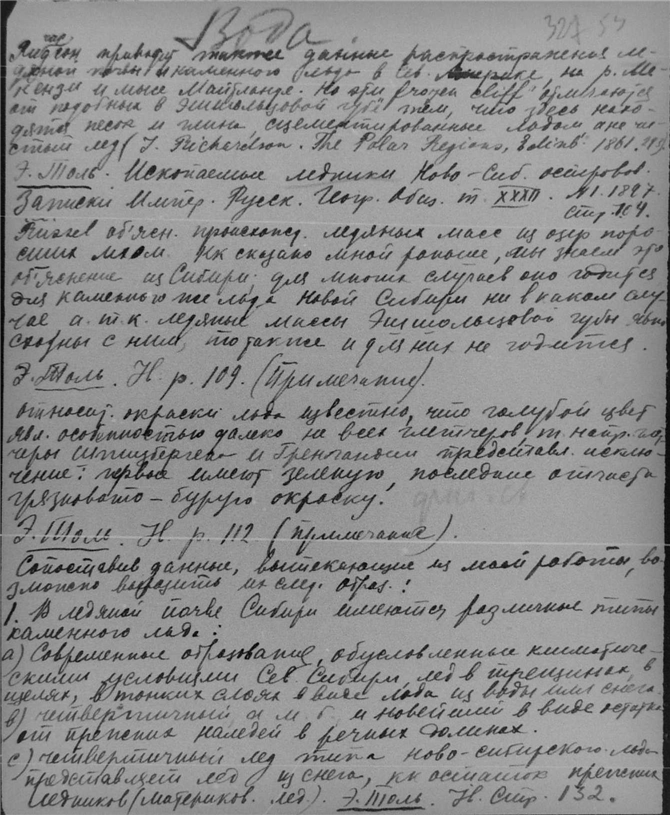 Вода
327 54
Ричардсон приводит также данные распространения ле-
дяной почвы и каменного льда в Сев. Америке, на р. Ме-
кензи и мысе Майтланде. Но эти frozen cliff отличаются
от подобных в Эшшольцовой губе тем, что здесь нахо-
дятся песок и глина сцементированные льдом а не чи-
стый лед (J. Richardson. The Polar Regions, Edinb. 1861.
Э. Толь. Ископаемые ледники Ново-Сиб. островов.
Записки Импер. Русск. Геогр. Общ. т. XXXII. №1. 1897.
стр. 104.
об'ясн. происхожд. ледяных масс из озер поро-
сших мхом. Кк сказано мной раньше, мы знаем это
об'яснение из Сибири; для многих случаев оно годится
для каменного же льда Новой Сибири ни в каком слу-
чае а т.к. ледяные массы Эшшольцовой губы
сходны с ним, то также и для них не годится.
Э. Толь. Н. р. 109. (Примечание).
относит. окраски льда известно, что голубой цвет
явл. особенностью далеко не всех глетчеров, т. напр.
Шпицбергена и Гренландии представл. исклю-
чение: первые имеют зеленую, последние отчасти
грязновато-бурую окраску.
Э. Толь. Н. р. 112 (примечание).
Сопоставив данные, вытекающие из моей работы, во-
зможно выразить их след. образ.:
1. В ледяной почве Сибири имеются различные типы
каменного льда:
а) Современные образования, обусловленные климатиче-
скими условиями Сев. Сибири, лед в трещинах, в
щелях, в тонких слоях в виде льда из воды или снега
в) четвертичный а м. б. и новейший в виде остатка
от прежних наледей в речных долинах.
с) четвертичный лед типа ново-сибирского льда
представляет лед из снега, кк остаток прежних
ледников (материков. лед). Э. Толь. Н. Стр. 132.